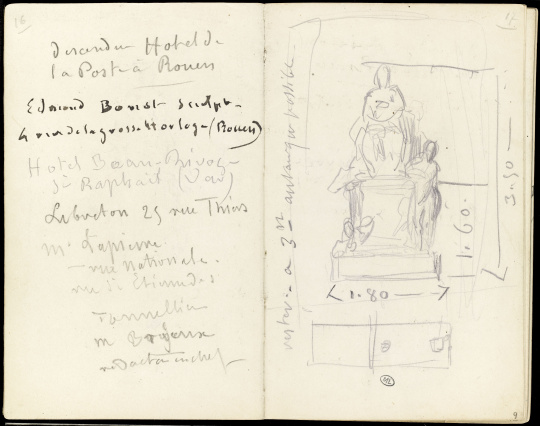 16
descendu Hotel de
la Poste à Rouen
Edmond Bonet Sculpt.
4 rue de la grosse Horloge (Rouen)
Hotel Beau-Rivage
St Raphaël (Var)
Lebreton 25 rue Thiers
Mr Lapierre
rue Nationale.
rue St Etienne des
Tonnelliers
M
redacteur en chef
rester à 3m autant que possible
3.50
1.60
1.80
9